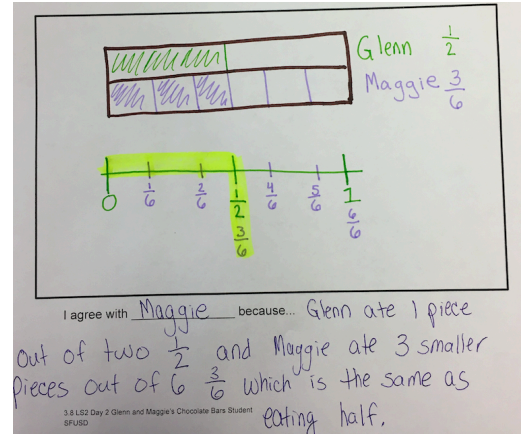 Glenn 1/2
Maggie 3/6
0 1/6 2/6 1/2 4/6 5/6 1
3/6 6/6
I agree with Maggie because... Glenn ate 1 piece
out of two 1/2 and Maggie ate 3 smaller
pieces out of 6 3/6 which is the same as
eating half.
3.8 LS2 Day 2 Glenn and Maggie's Chocolate Bars Student
SFUSD